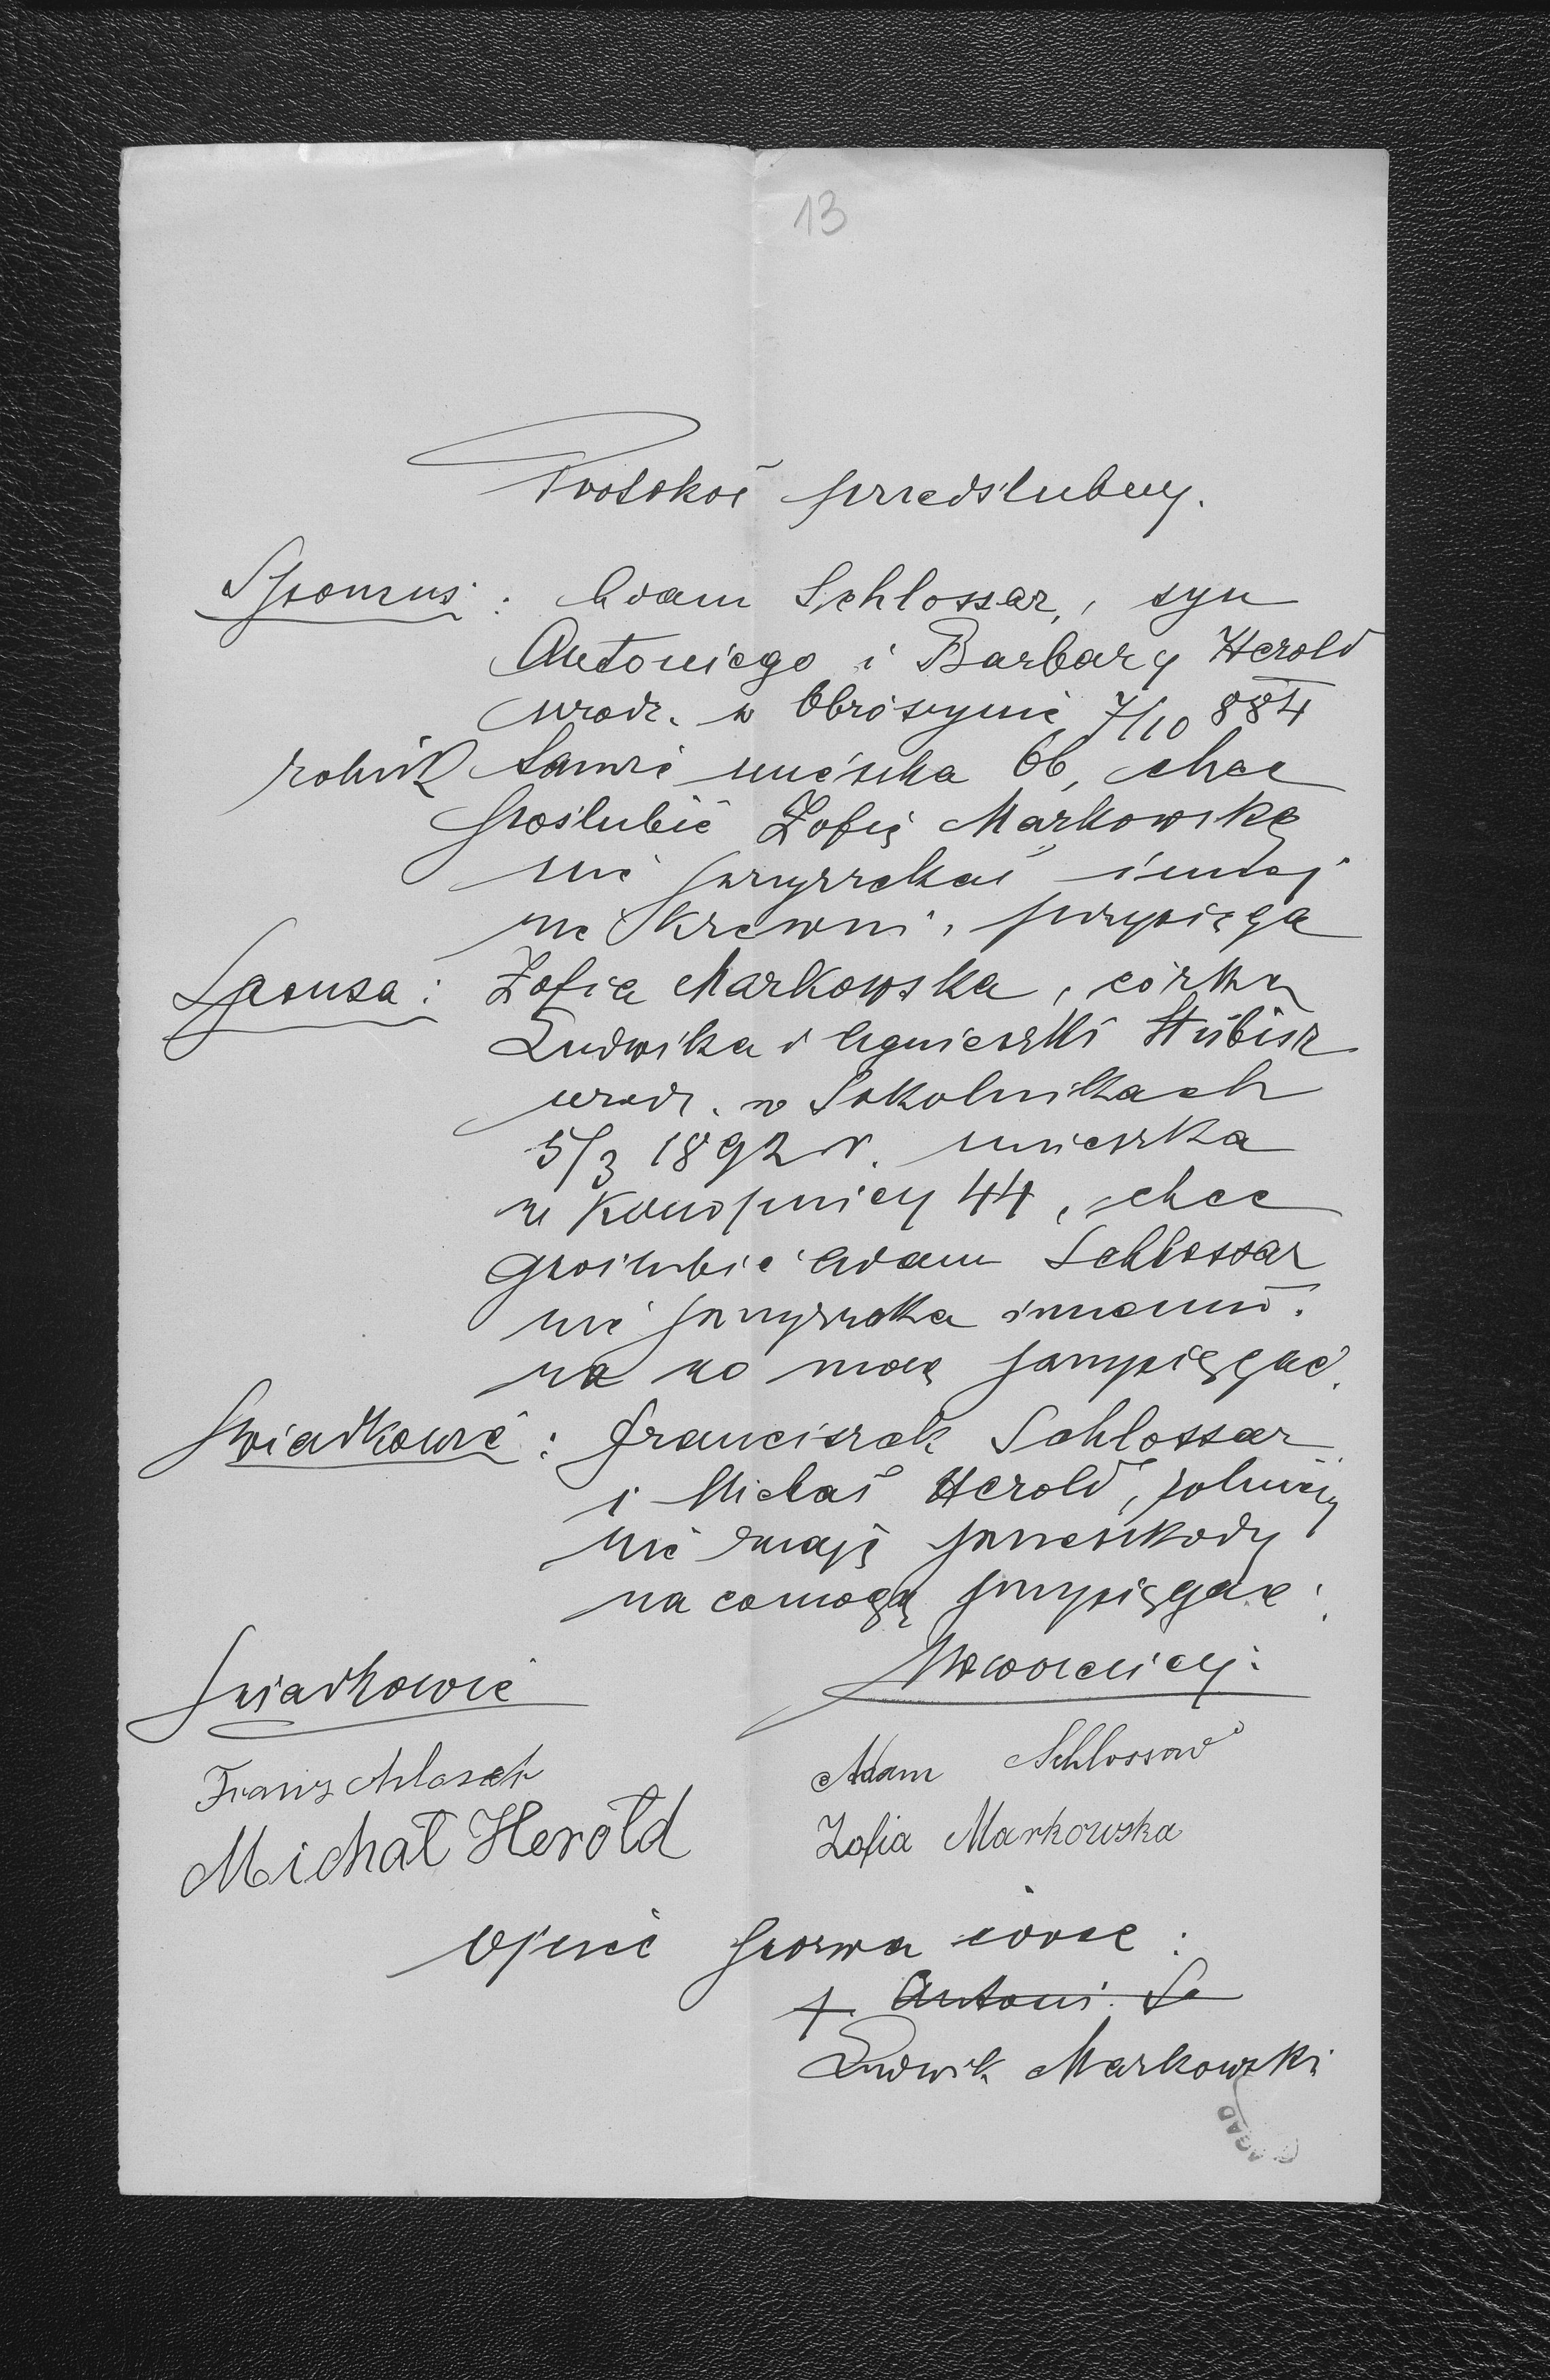 13
Protokoł przedślubny.
Sponsus: Adam Schlossar, syn
Antoniego i Barbary Herold
urodz. w Obroszynie 7/10 884
rolnik tamże mieszka 66, chce
poślubić Zofię Markowską
nie przyrzekał innej
nie krewni, przysięga
Sponsa: Zofia Markowska, córka
Ludwika i Agnieszki Hübisz
urodz. w Sokolnikach
5/3 1892 r. mieszka
w Konopnicy 44, chce
poślubić Adam Schlossar
nie przyrzekła innemu.
na co mogą przysięgać.
Świadkowie: Franciszek Schlossar
i Michał Herold, rolnicy
nie znają przeszkody
na co mogą przysięgać.
Świadkowie Nowożeńcy:
Franz Adam Schlossar
Michał Herold Zofia Markowska
Ojciec pozwa córce:
+ Antoni S
Ludwik Markowski
AGAD